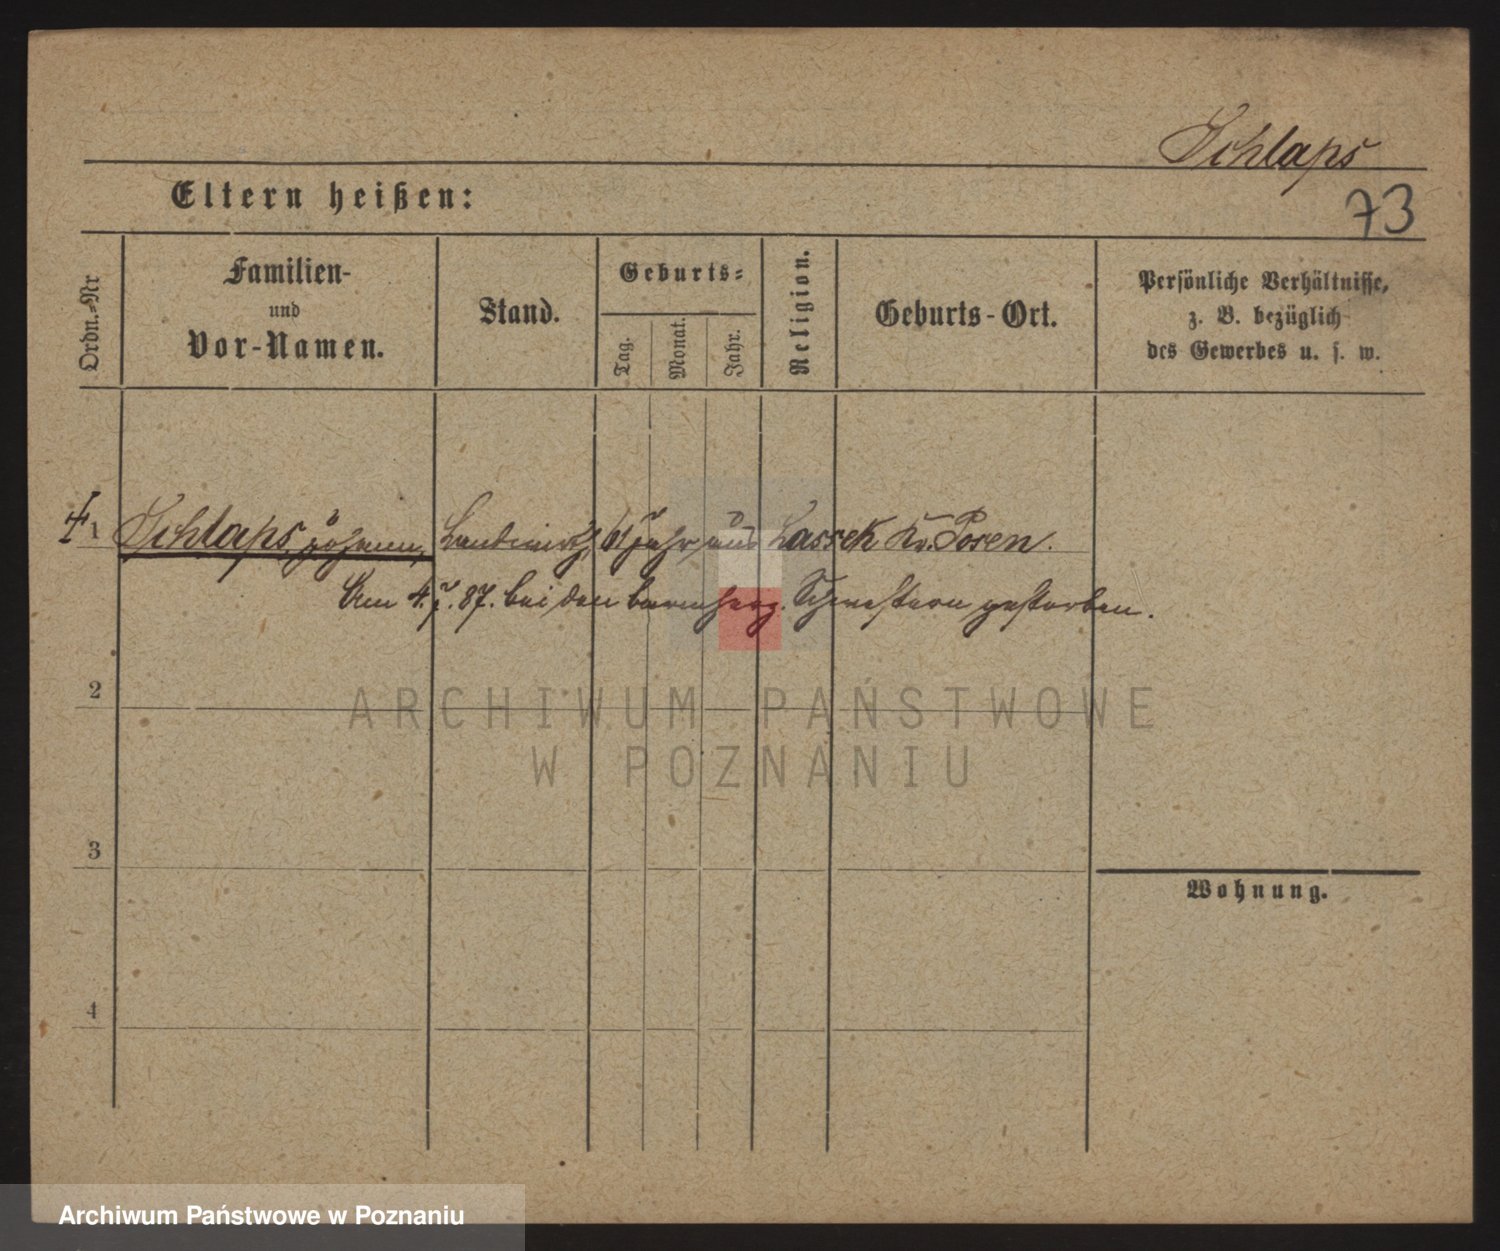 Schlaps
73
Eltern heißen:
Ordn.-Nr
Familien-
und
Vor-Namen.
Stand.
Geburts-
Tag.
Monat.
Jahr.
Religion.
Geburts-Ort.
Persönliche Verhältnisse,
z. B. bezüglich
des Gewerbes u. s. w.
1 Schlaps Johann, Landwirth, 61 Jahr, aus Lassek Kr. Posen.
Am 4. 7. 87. bei den barmherz. Schwestern gestorben.
2
ARCHIWUM PAŃSTWOWE
W POZNANIU
3
Wohnung.
4
Archiwum Państwowe w Poznaniu